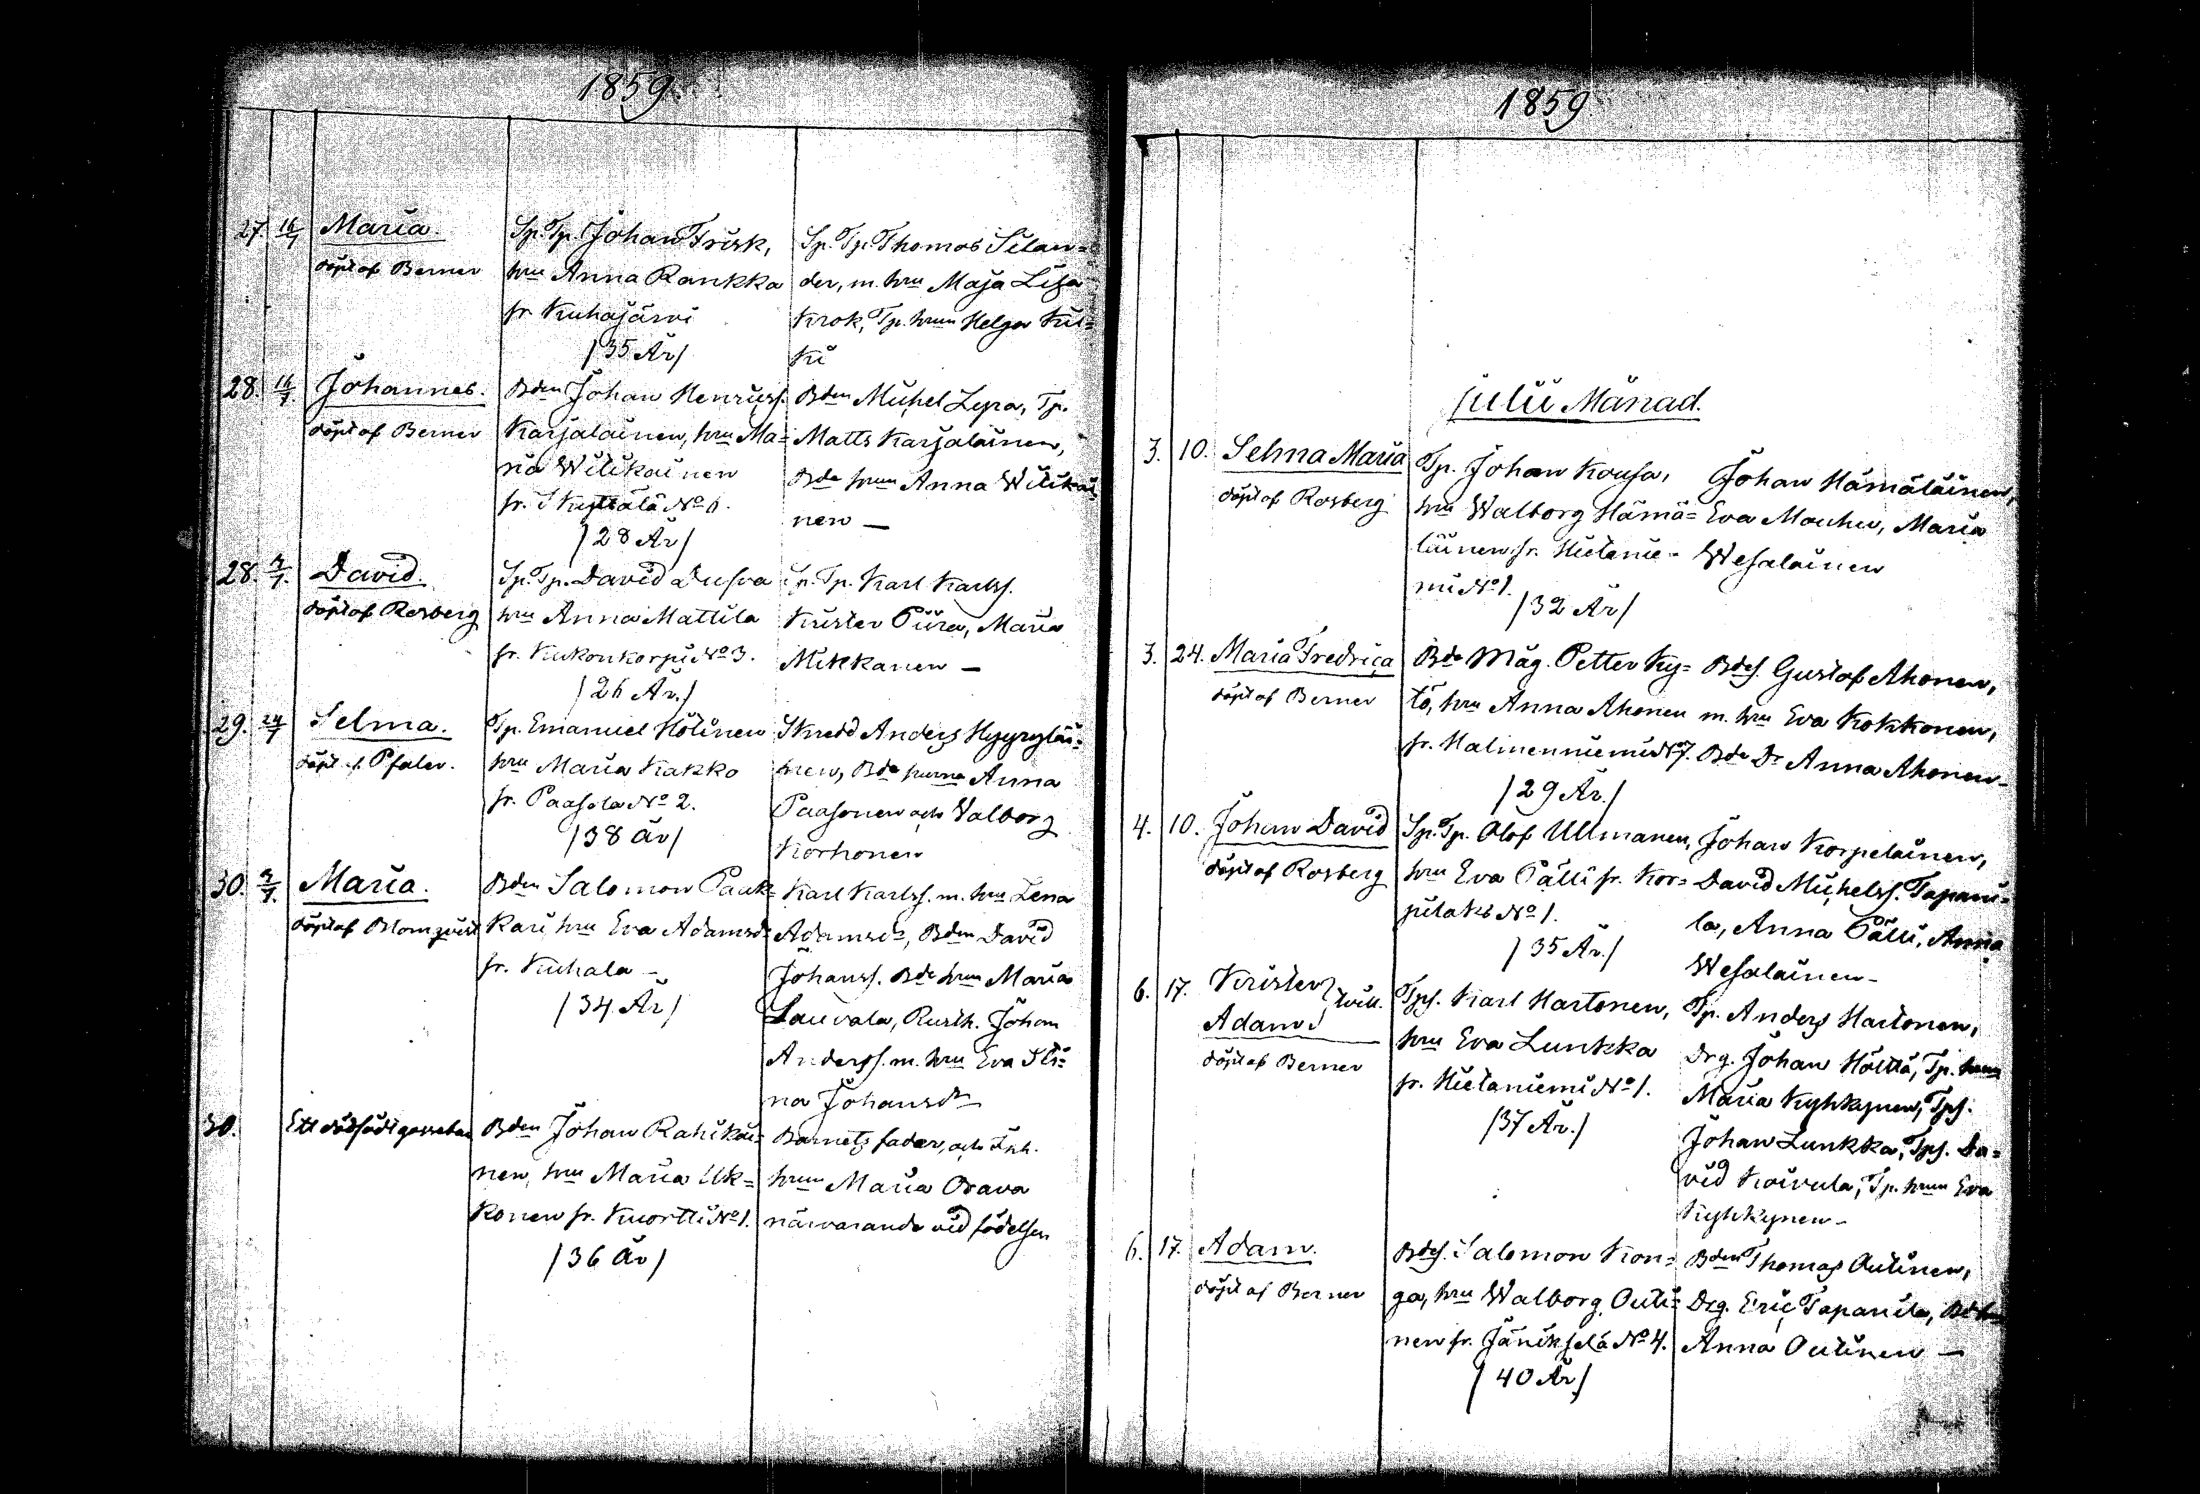 1859
27. 16/7 Maria.
döpt af Berner
Sp. Tp. Johan Frisk,
hru Anna Rankka
fr. Kuhajärvi
/35 År/
Sp. Tp. Thomas Silan=
der, m. hru Maja Lisa
Krok, Tp. hrun Helga Kil=
ki
28. 16/7. Johannes.
döpt af Berner
Bden Johan Henricss.
Karjalainen, hru Ma=
ria Wilikainen
No 6.
/28 År/
Bden Michel Lepa, Tp.
Matts Karjalainen,
Bde hrun Anna Wilikai
nen —
28. David.
döpt af Rosberg
Sp. Tp. David
hru Anna Mattila
fr. Kukonkorpi No 3.
/26 År./
Sp. Tp. Karl Karlss.
Krister Piira, Maria
Mikkanen —
29. 24/7 Selma.
döpt af Pfaler.
Tp. Emanuel Hölinen
hru Maria Kakko
fr. Paasola No 2.
/38 år/
Skredd Anders Hyyryläi=
nen, Bde hurna Anna
Paasonen och Valborg
Korhonen
30. Maria.
döpt af Blomqvist
Bden Salomon Paak=
kari hru Eva Adamsdr
fr. Kuhala —
/34 År/
Karl Karlss. m. hru Lena
Adamsdr, Bden David
Johanss. Bde hrun Maria
Lauvala, Rusth. Johan
Anderss. m. hru Eva Sti=
na Johansdr
30. Ett dödfödt gossebarn
Bden Johan Rahikai=
nen, hru Maria Uk=
konen fr. Kuortti No 1.
/36 år/
Barnets fader, och Inh.
hrun Maria Orava
närvarande vid födelsen
1859
julii Månad.
3. 10. Selma Maria
döpt af Rosberg
Tp. Johan Kousa,
hru Walborg Hämä=
läinen fr. Hietanie=
mi No 1.
/32 År/
Johan Hämäläinen,
Eva Mouhu, Maria
Wesalainen
3. 24. Maria Fredrica
döpt af Berner
Bde Måg. Petter Ky=
tö, hru Anna Ahonen
fr. Halmenniemi No 7.
/29 År./
Bdes. Gustaf Ahonen,
m. hru Eva Kokkonen,
Bde Dr Anna Ahonen —
4. 10. Johan David
döpt af Rosberg
Sp. Tp. Olof Ullmanen,
hru Eva Pälli fr. Kor=
pilaks No 1.
/35 År./
Johan Korpelainen,
David Michelss. Tapani=
la, Anna Pälli, Anna
Wesalainen —
6. 17. Krister } tvill.
Adam
döpt af Berner
Tps. Karl Hartonen,
hru Eva Lunkka
fr. Hietaniemi No 1.
/37 År./
Tp. Anders Hartonen,
Drg. Johan Hölttä, Tp. hrun
Maria Kyhkynen, Tps.
Johan Lunkka, Tps. Da=
vid Koivula, Tp. hrun Eva
Kyhkynen —
6. 17. Adam.
döpt af Berner
Bdes. Salomon Kon=
ga, hru Walborg Outi=
nen fr. Jänikselä No 4.
/40 År/
Bden Thomas Outinen,
Drg. Eric Tapanila,
Anna Outinen —